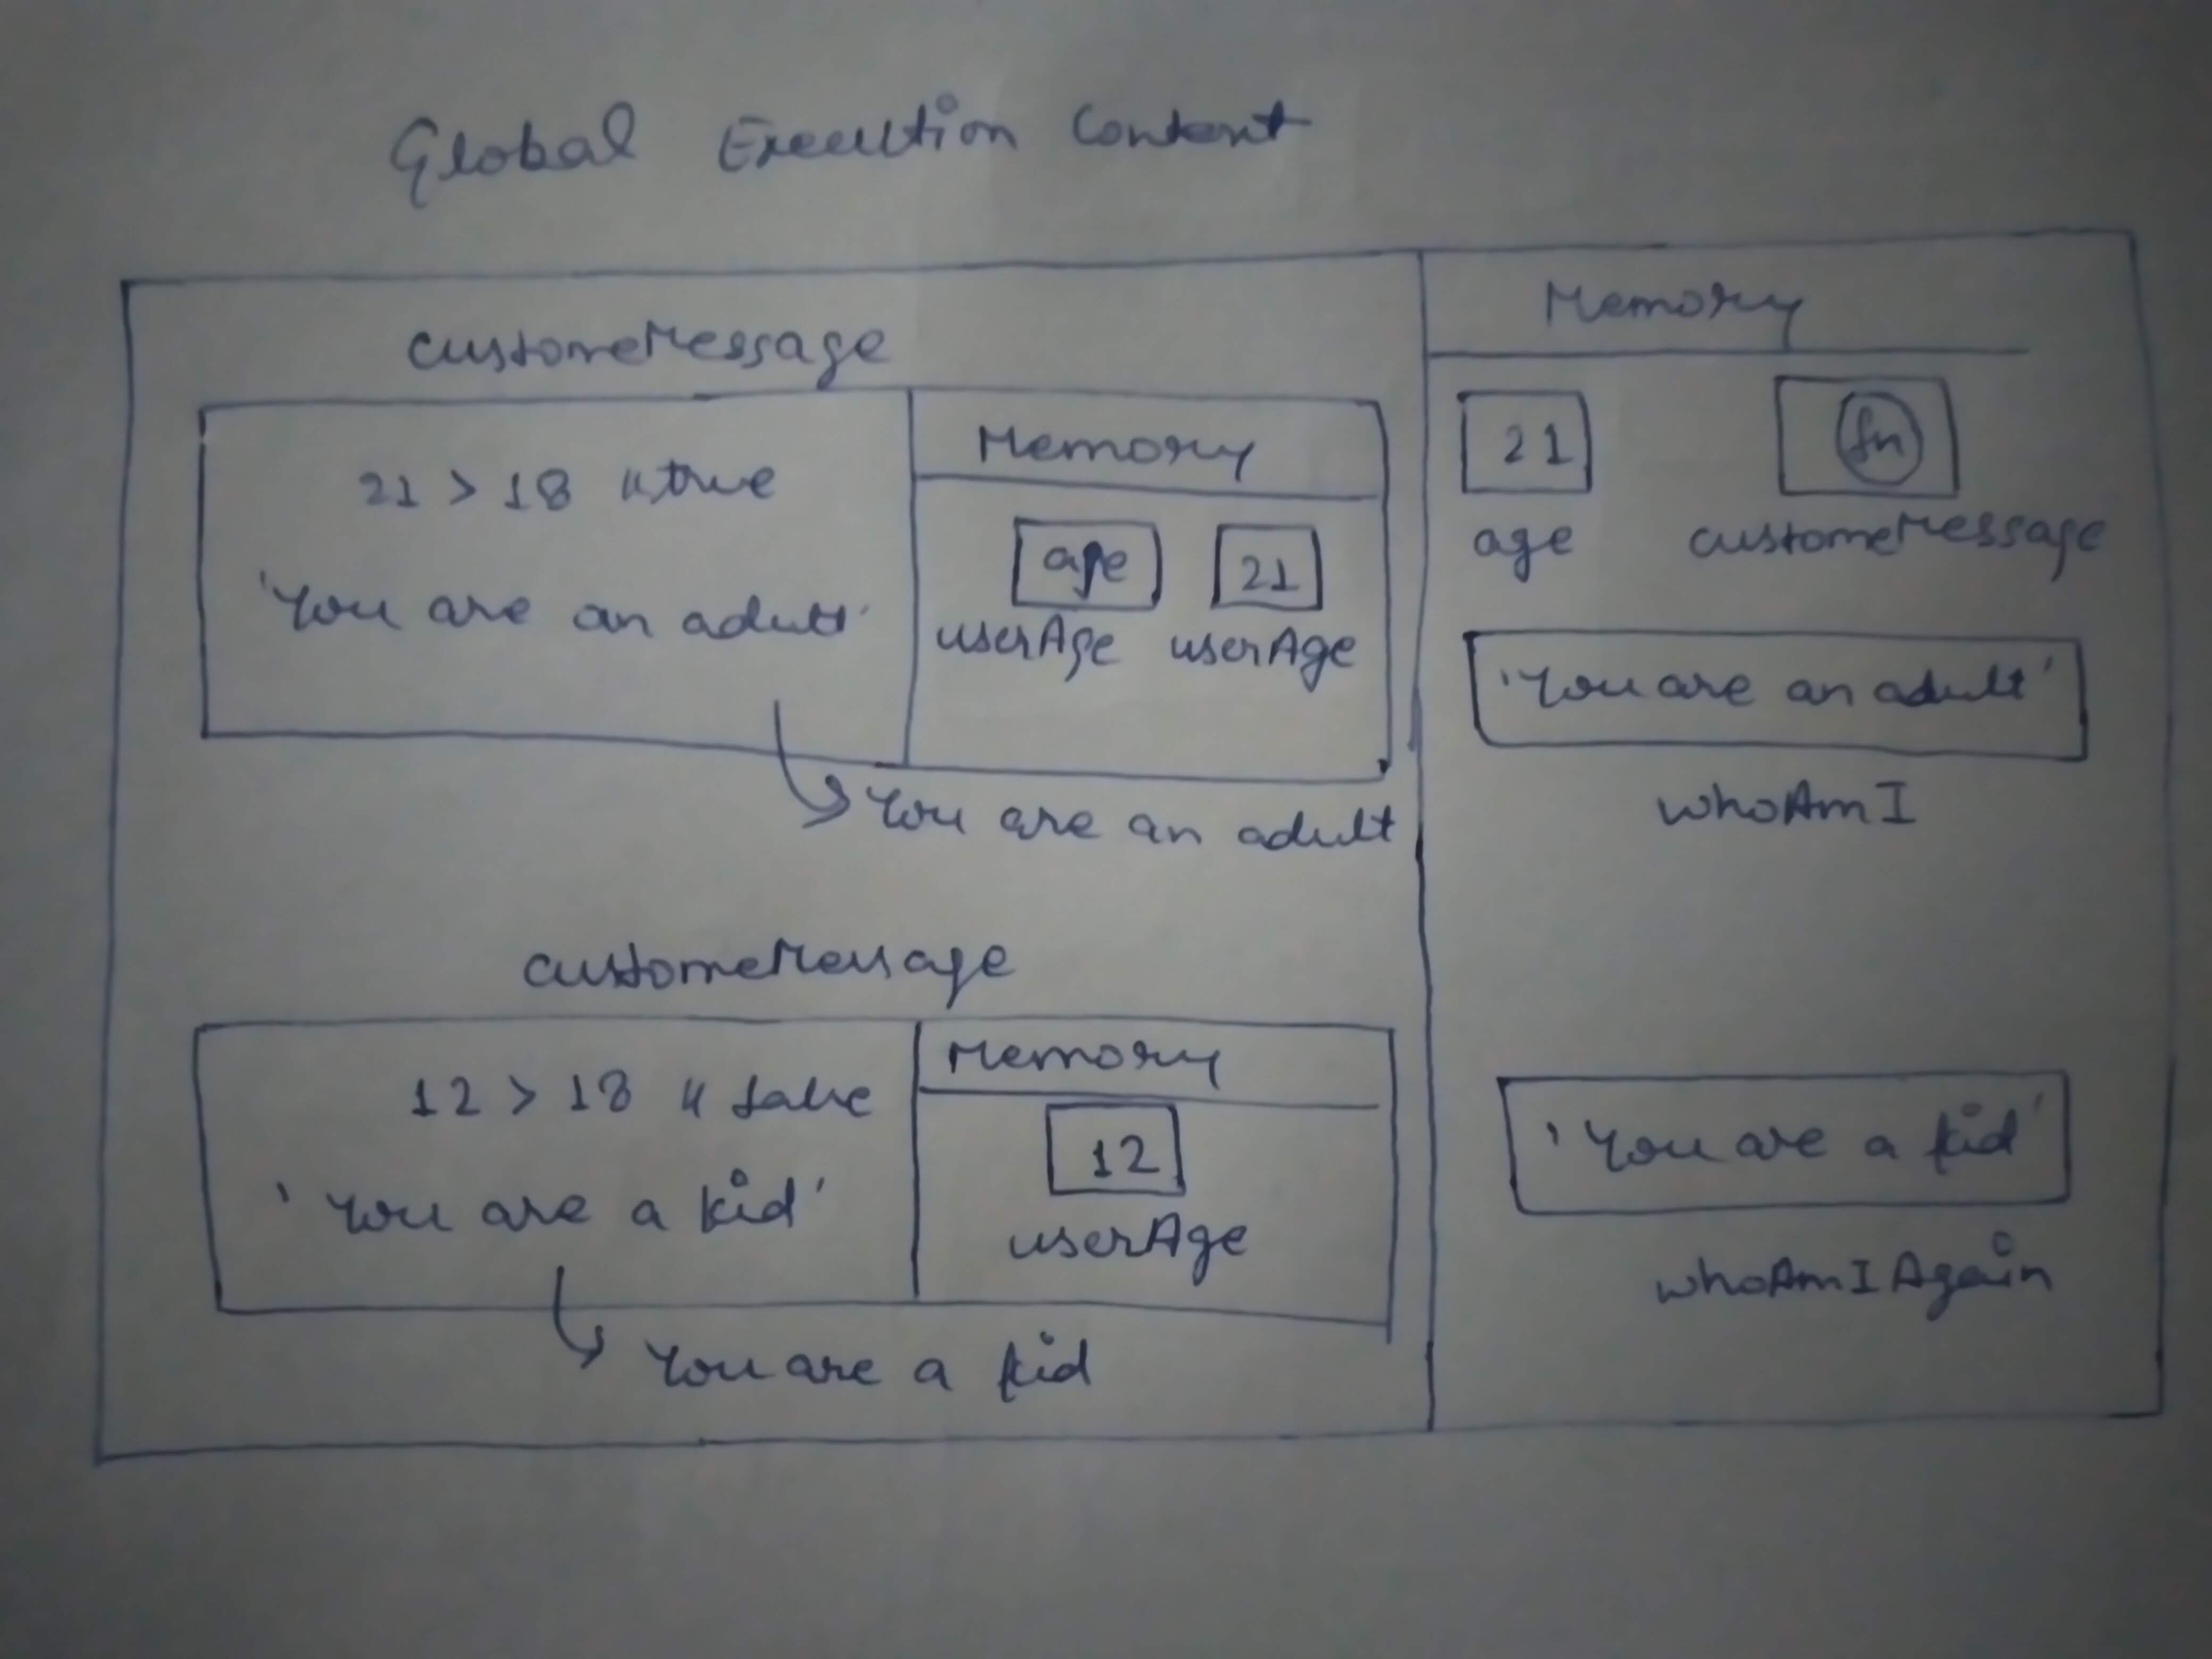 Global Execution Content
customeMessage
21 > 18 // true
'You are an adult'
Memory
age 21
userAge userAge
You are an adult
customeMessage
12 > 18 // false
'You are a kid'
Memory
12
userAge
You are a kid
Memory
21 fn
age customeMessage
'You are an adult'
whoAmI
'You are a kid'
whoAmIAgain